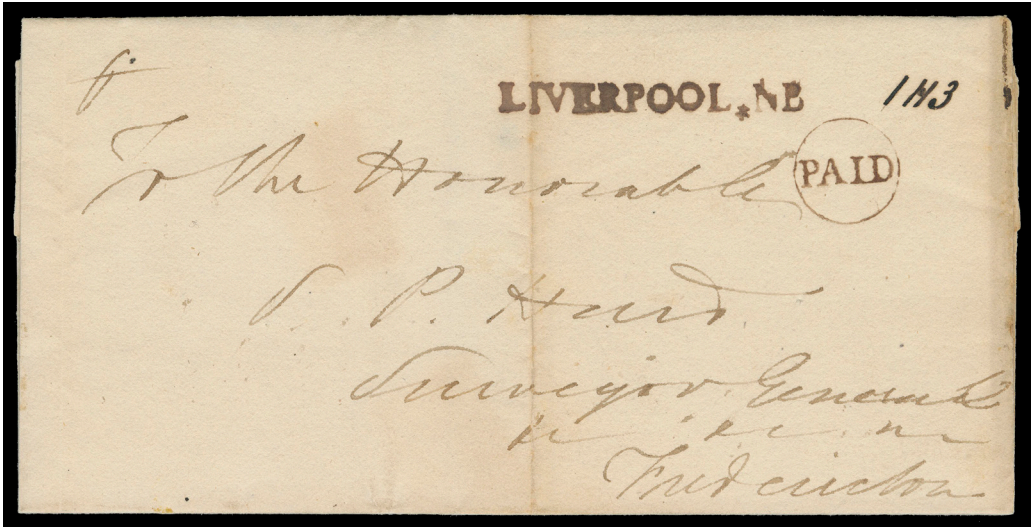 LIVERPOOL * NB
1H3
PAID
To the Honorable
S. P. Hurd
Surveyor General
Fredericton